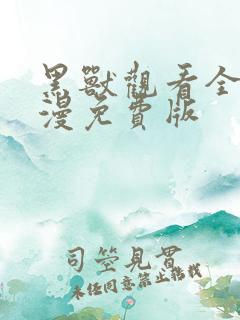 黑獸觀看全
漫免費版
司空見貫
未经同意禁止转载